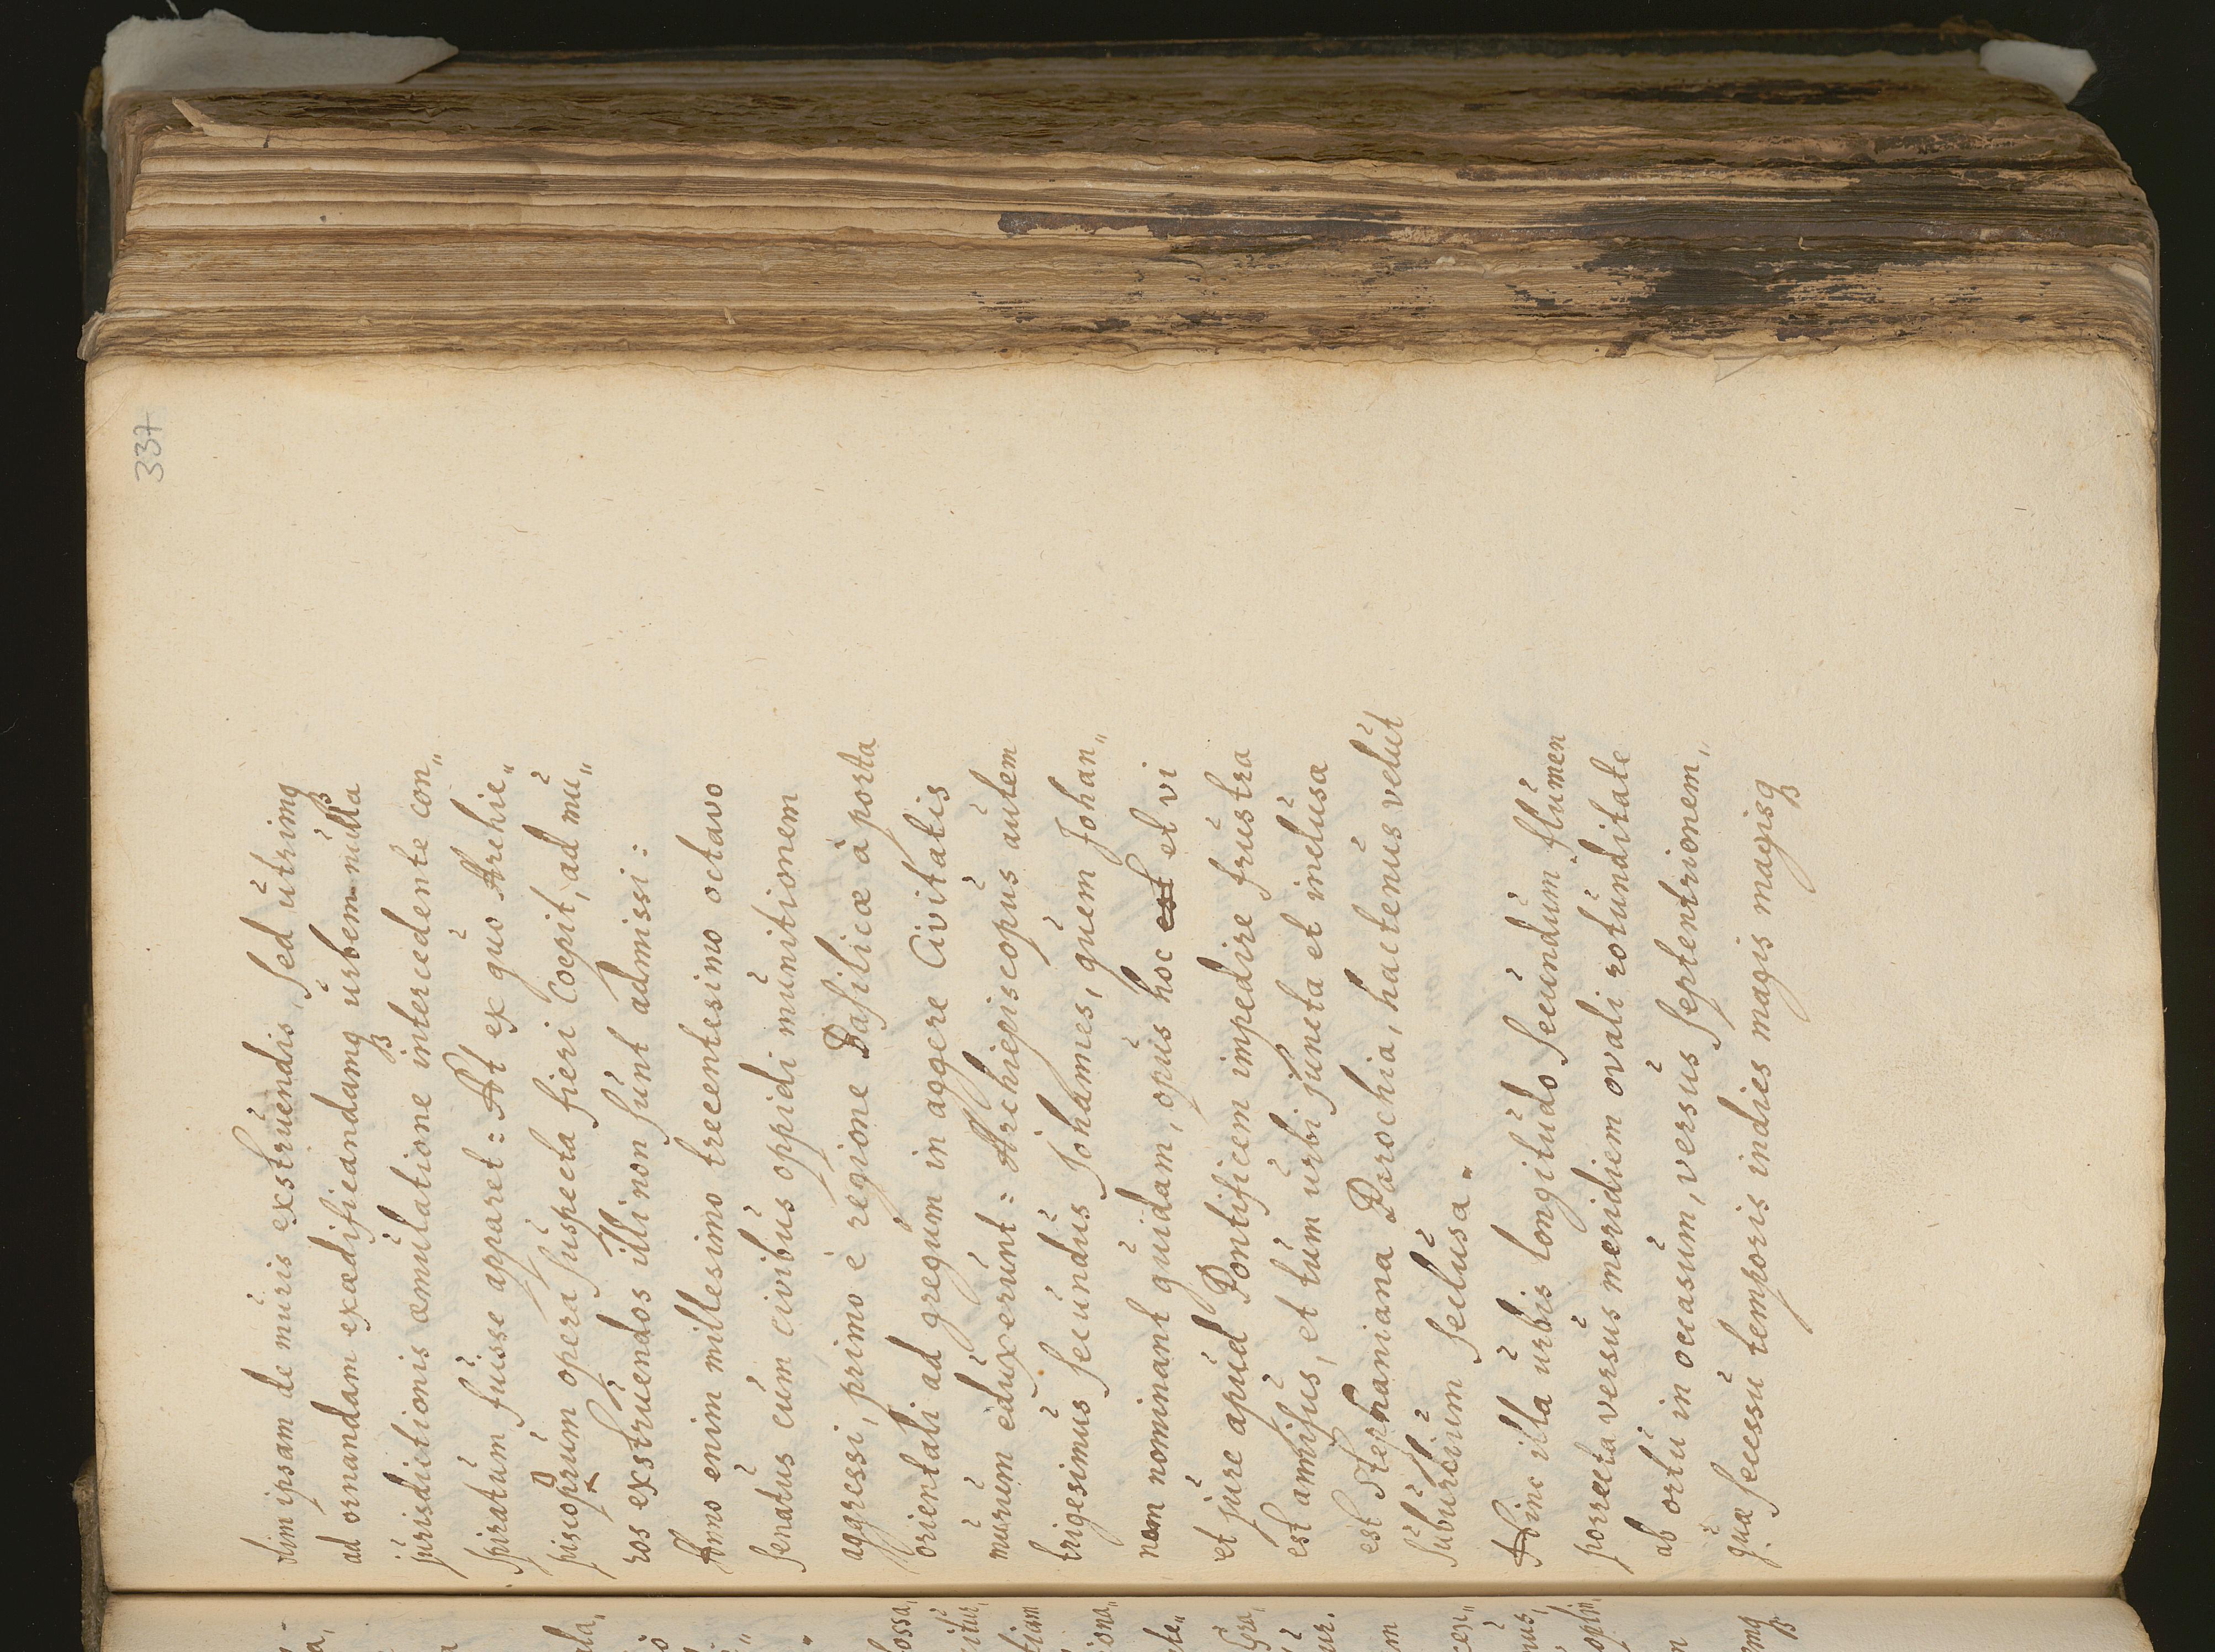 337
tim ipsam de muris exstruendis, sed utrimqꝫ
ad ornandam exædificandamqꝫ urbem nulla
jurisdictionis æmulatione intercedente con„
spiratum fuisse apparet: At ex quo Archie„
piscoporum opera suspecta fieri Coepit, ad mu„
ros exstruendos illi non sunt admissi:
Anno enim millesimo trecentesimo octavo
senatus cum civibus oppidi munitionem
aggressi, primo è regione Basilicæ à porta
orientali ad gregum in aggere Civitatis
murum eduxerunt: Archiepiscopus autem
trigesimus secundus Johannes, quem Johan„
nem nominant quidam, opus hoc est et vi
et jure apud Pontificem impedire frustra
est annisus, et tum urbi juncta et inclusa
est Stephaniana Parochia, hactenus velut
suburbium seclusa.
Hinc illa urbis longitudo secundum flumen
porrecta versus meridiem ovali rotunditate
ab ortu in occasum, versus septentrionem„
quæ secessu temporis indies magis magisqꝫ